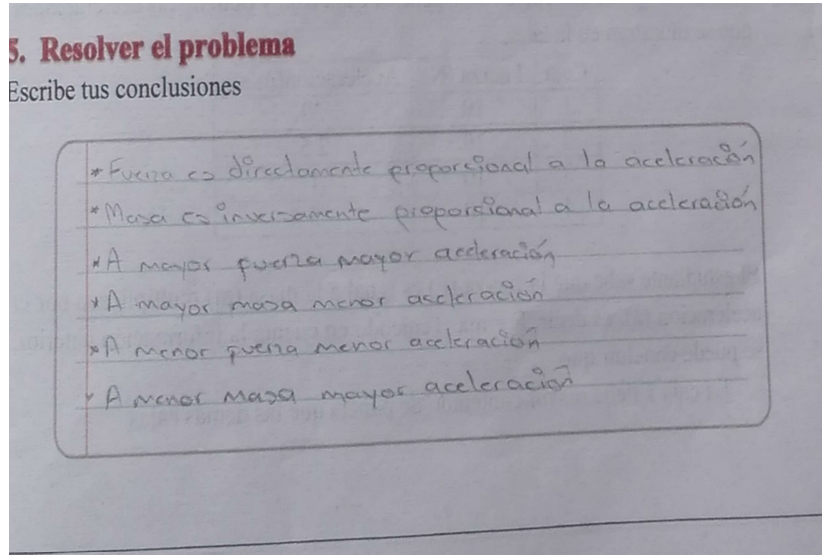 5. Resolver el problema
Escribe tus conclusiones
* Fuerza es directamente proporsional a la aceleración
* Masa es inversamente proporsional a la aceleración
* A mayor fuerza mayor aceleración
* A mayor masa menor asceleración
* A menor fuerza menor aceleración
* A menor Masa mayor aceleración